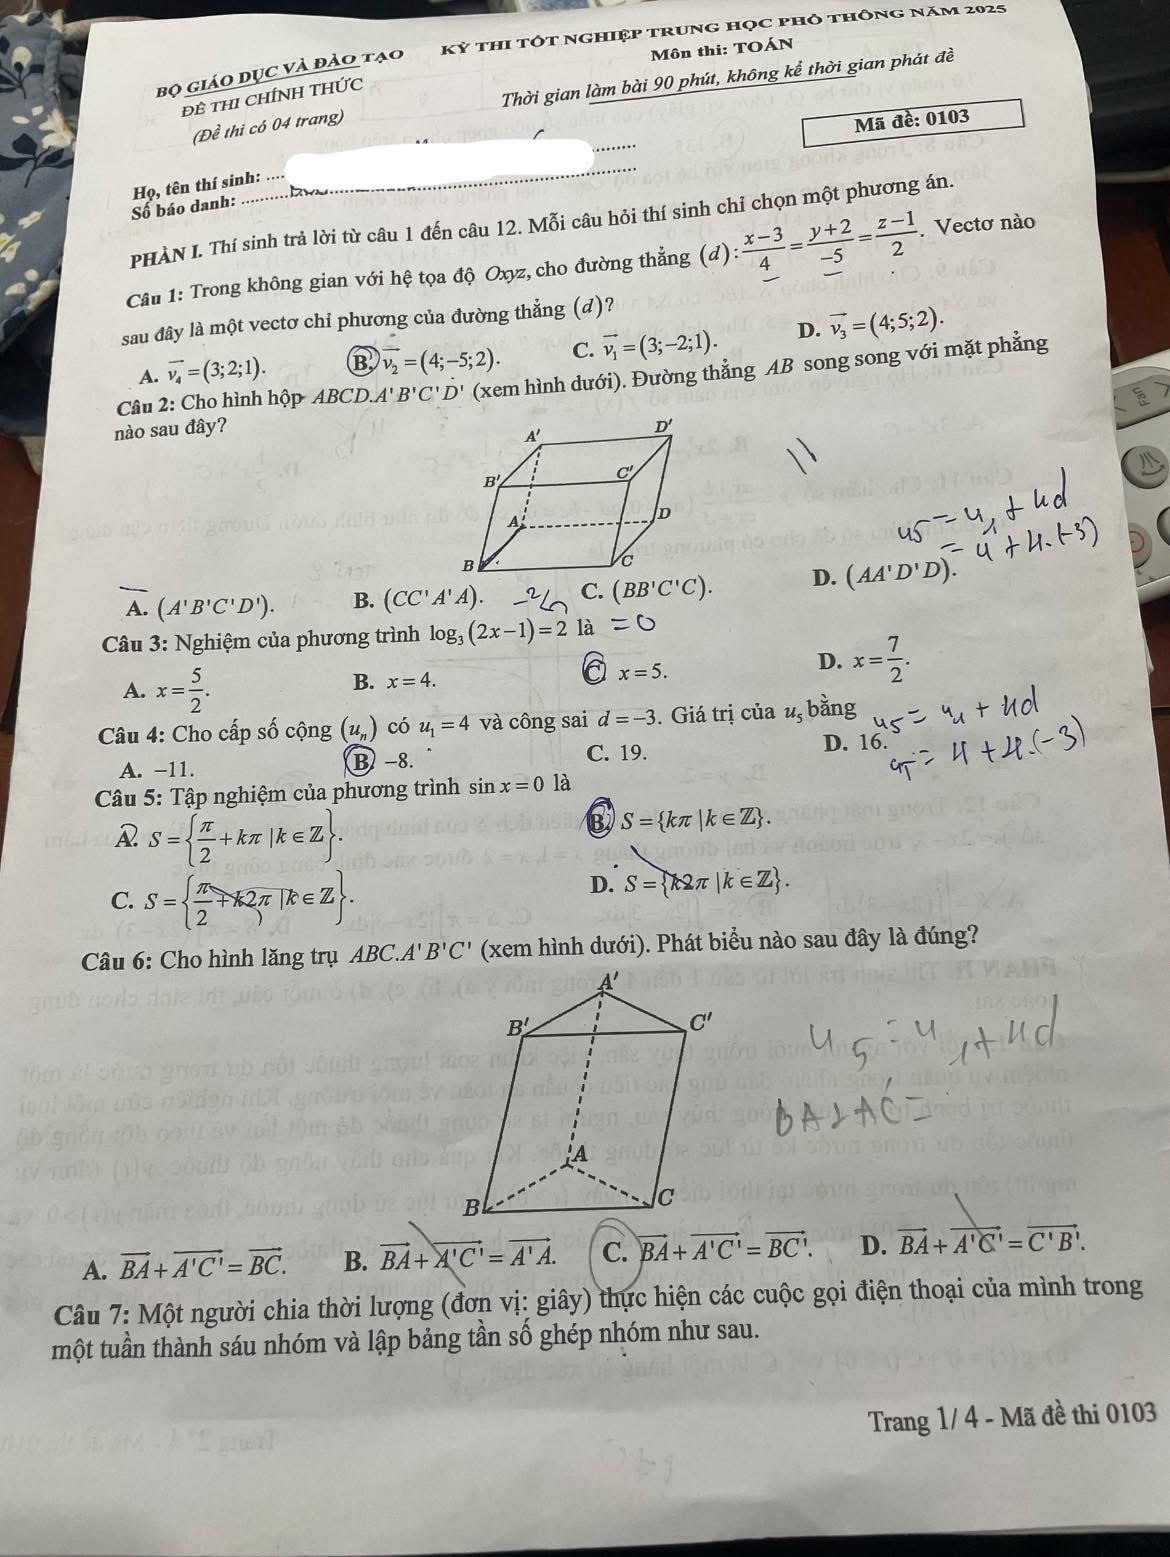 BỘ GIÁO DỤC VÀ ĐÀO TẠO
ĐỀ THI CHÍNH THỨC
(Đề thi có 04 trang)
KỲ THI TỐT NGHIỆP TRUNG HỌC PHỔ THÔNG NĂM 2025
Môn thi: TOÁN
Thời gian làm bài 90 phút, không kể thời gian phát đề
Mã đề: 0103
Họ, tên thí sinh:
Số báo danh:
PHẦN I. Thí sinh trả lời từ câu 1 đến câu 12. Mỗi câu hỏi thí sinh chỉ chọn một phương án.
Câu 1: Trong không gian với hệ tọa độ Oxyz, cho đường thẳng (d): (x−3)/4 = (y+2)/−5 = (z−1)/2. Vectơ nào
sau đây là một vectơ chỉ phương của đường thẳng (d)?
A. v₄⃗ = (3;2;1). B. v₂⃗ = (4;−5;2). C. v₁⃗ = (3;−2;1). D. v₃⃗ = (4;5;2).
Câu 2: Cho hình hộp ABCD.A'B'C'D' (xem hình dưới). Đường thẳng AB song song với mặt phẳng
nào sau đây?
A' D'
B' C'
A D
B C
//
u5 = u1 + 4d
= 4 + 4.(-3)
A. (A'B'C'D'). B. (CC'A'A). C. (BB'C'C). D. (AA'D'D).
Câu 3: Nghiệm của phương trình log₃(2x−1) = 2 là = 0
A. x = 5/2. B. x = 4. C. x = 5. D. x = 7/2.
Câu 4: Cho cấp số cộng (uₙ) có u₁ = 4 và công sai d = −3. Giá trị của u₅ bằng
A. −11. B. −8. C. 19. D. 16.
u5 = u1 + 4d
u5 = 4 + 4.(-3)
Câu 5: Tập nghiệm của phương trình sin x = 0 là
A. S = {π/2 + kπ | k ∈ ℤ}. B. S = {kπ | k ∈ ℤ}.
C. S = {π/2 + k2π | k ∈ ℤ}. D. S = {k2π | k ∈ ℤ}.
Câu 6: Cho hình lăng trụ ABC.A'B'C' (xem hình dưới). Phát biểu nào sau đây là đúng?
A'
B' C'
A
B C
u5 = u1 + 4d
BA + A'C' =
A. BA⃗ + A'C'⃗ = BC⃗. B. BA⃗ + A'C'⃗ = A'A⃗. C. BA⃗ + A'C'⃗ = BC'⃗. D. BA⃗ + A'C'⃗ = C'B'⃗.
Câu 7: Một người chia thời lượng (đơn vị: giây) thực hiện các cuộc gọi điện thoại của mình trong
một tuần thành sáu nhóm và lập bảng tần số ghép nhóm như sau.
Trang 1/ 4 - Mã đề thi 0103
Fan